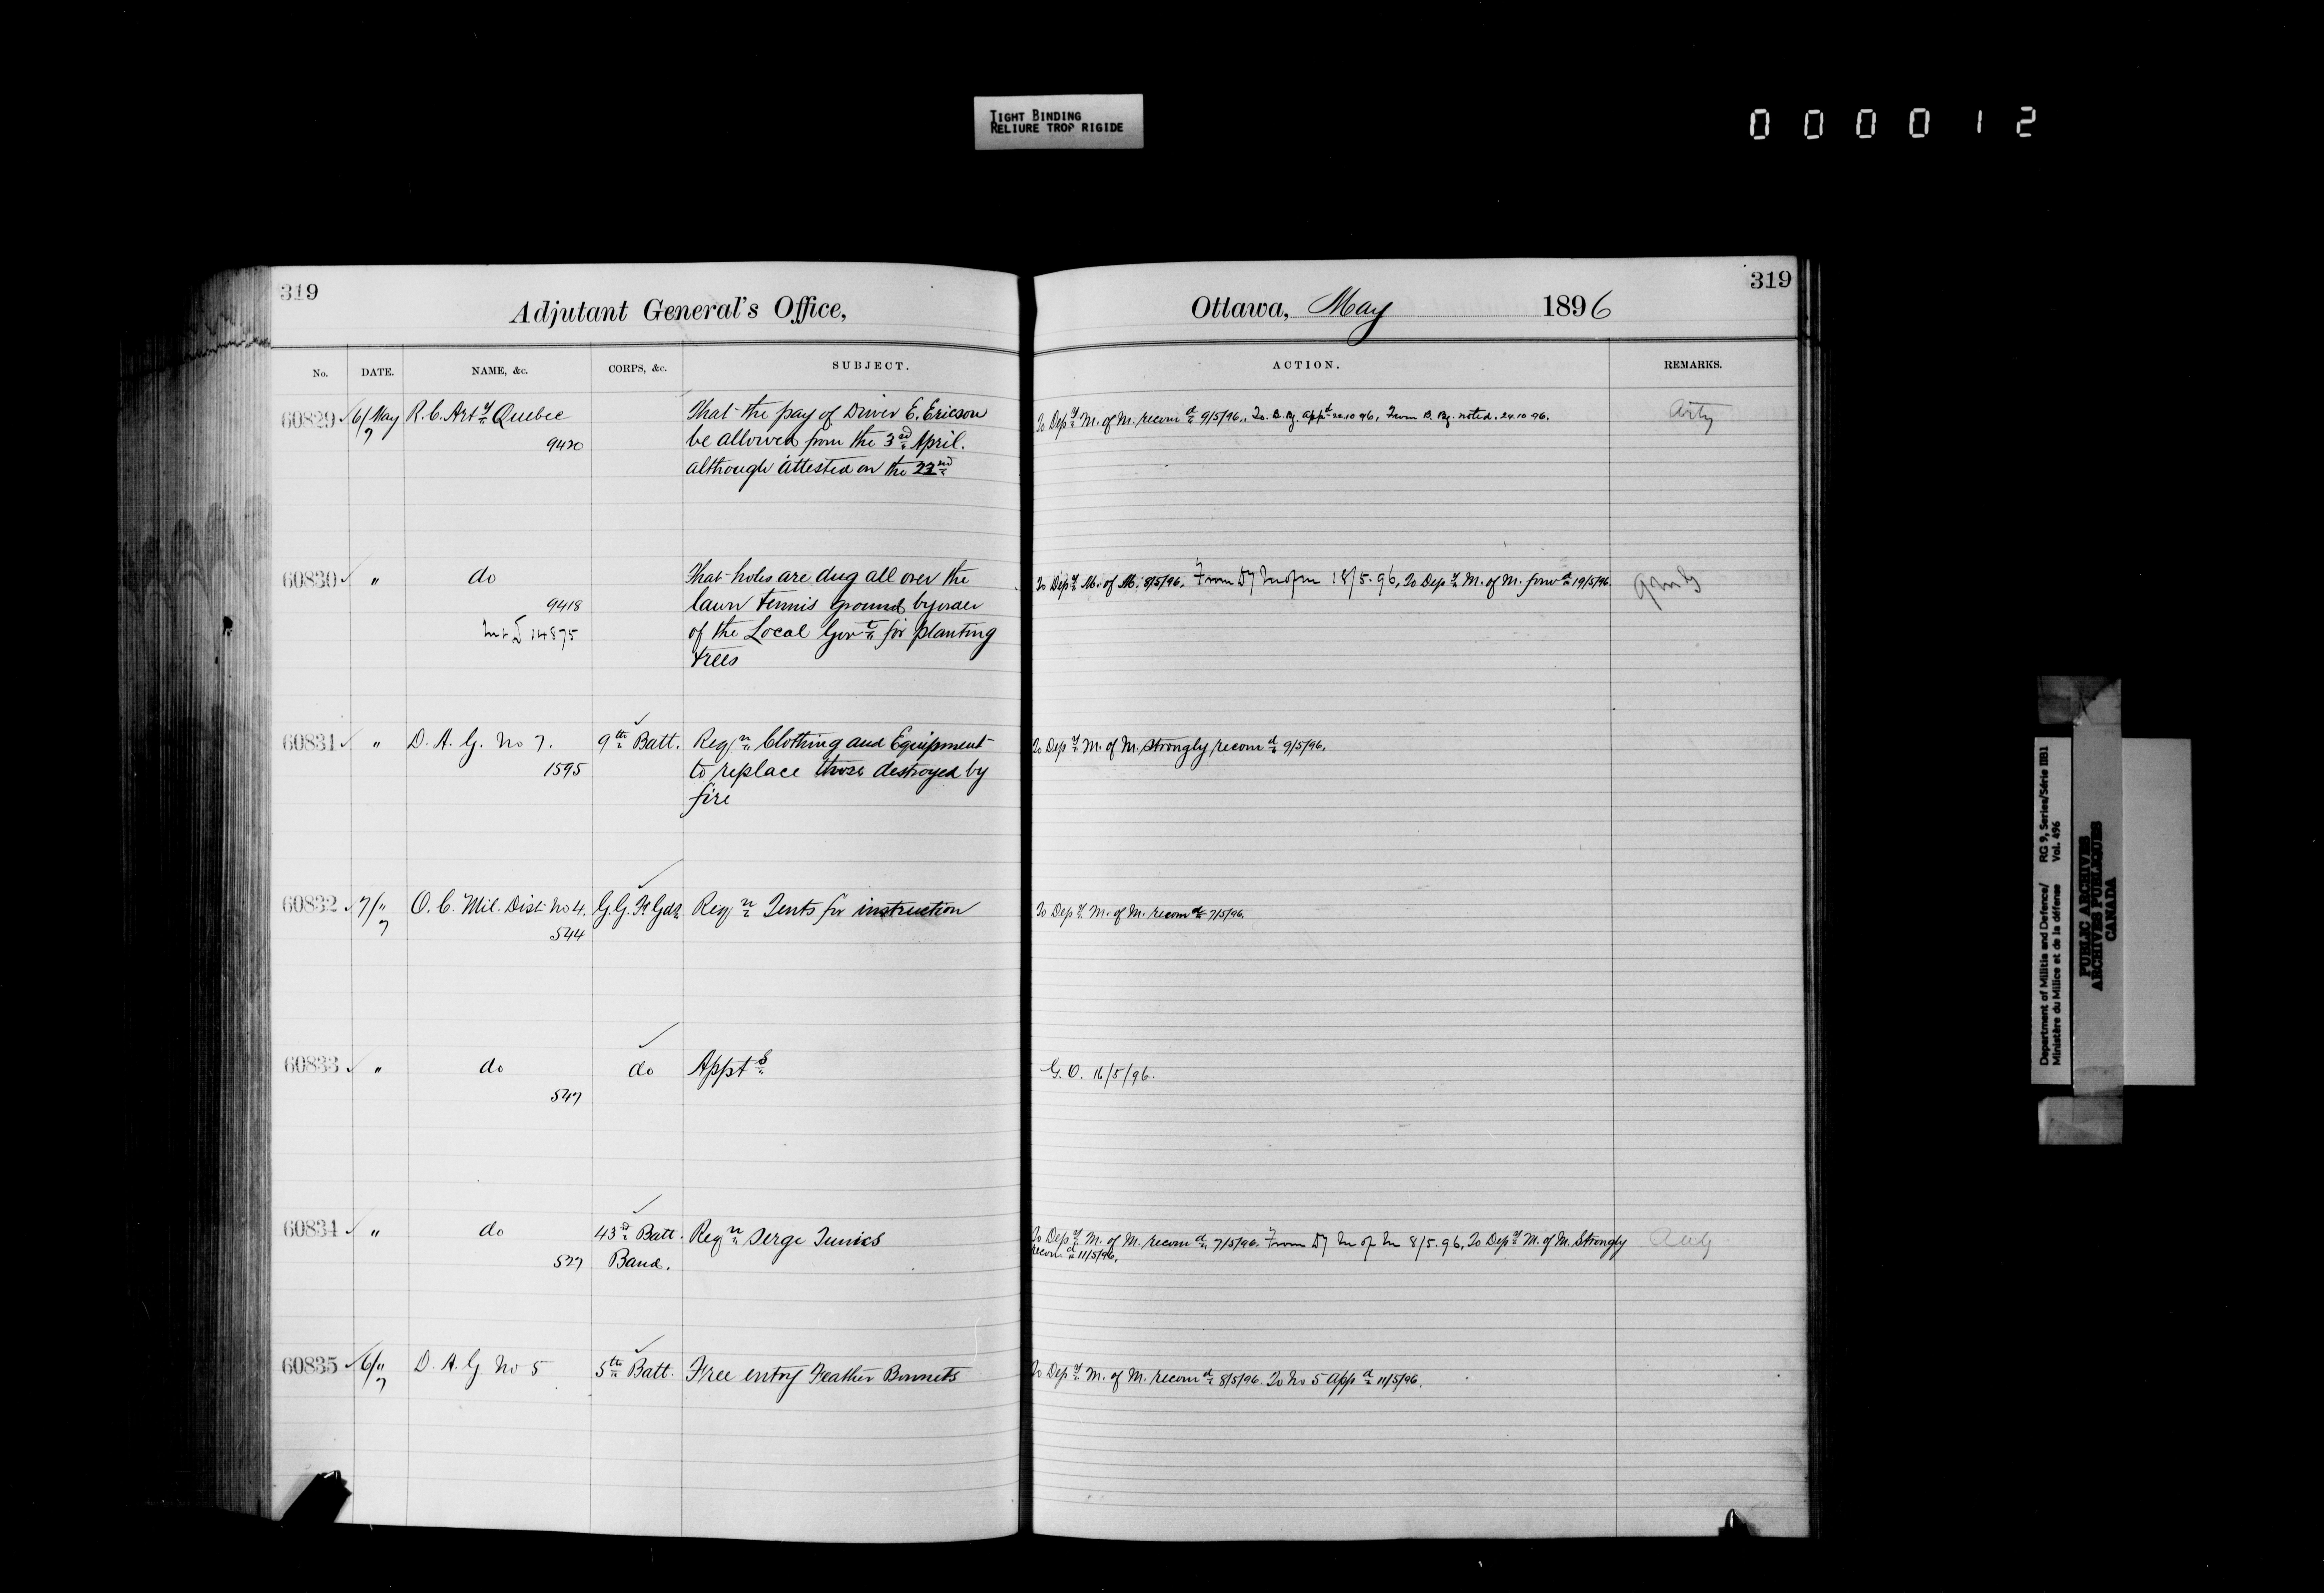 TIGHT BINDING
RELIURE TROP RIGIDE
000012
319
Adjutant General's Office,
No. DATE. NAME, &c. CORPS, &c. SUBJECT.
60829 6/May R. C. Arty Quebec That the pay of Driver E. Ericson
7 9420 be allowed from the 3rd April.
although attested on the 22nd
60830 " do That holes are dug all over the
9418 lawn tennis ground by order
14875 of the Local Govt for planting
trees
60831 " D. A. G. No 7. 9th Batt. Reqn Clothing and Equipment
1595 to replace those destroyed by
fire
60832 7/" O. C. Mil. Dist No 4. G. G. Ft Gds. Reqn Tents for instruction
7 544
60833 " do do Appts
547
60834 " do 43rd Batt. Reqn Serge Tunics
527 Band.
60835 6/" D. A. G No 5 5th Batt. Free entry Feather Bonnets
7
319
Ottawa, May 1896
ACTION. REMARKS.
To Depy M. of M. recomd 9/5/96. To. B. Bg. appd 22.10 96. From B. Bg. noted. 24.10 96. Arty
To Depy M. of M. 8/5/96. From Dy M of M 18/5.96, To Depy M. of M. forwd 19/5/96.
To Depy M. of M. strongly recomd 9/5/96.
To Depy M. of M. recomd 7/5/96.
G. O. 16/5/96.
To Depy M. of M. recomd 7/5/96. From Dy M of M 8/5.96, To Depy M. of M. Strongly
recomd 11/5/96.
To Depy M. of M. recomd 8/5/96. To No 5 appd 11/5/96.
Department of Militia and Defence/ RG 9, Series/Série IIB1
Ministère du Milice et de la défense Vol. 496
PUBLIC ARCHIVES
ARCHIVES PUBLIQUES
CANADA